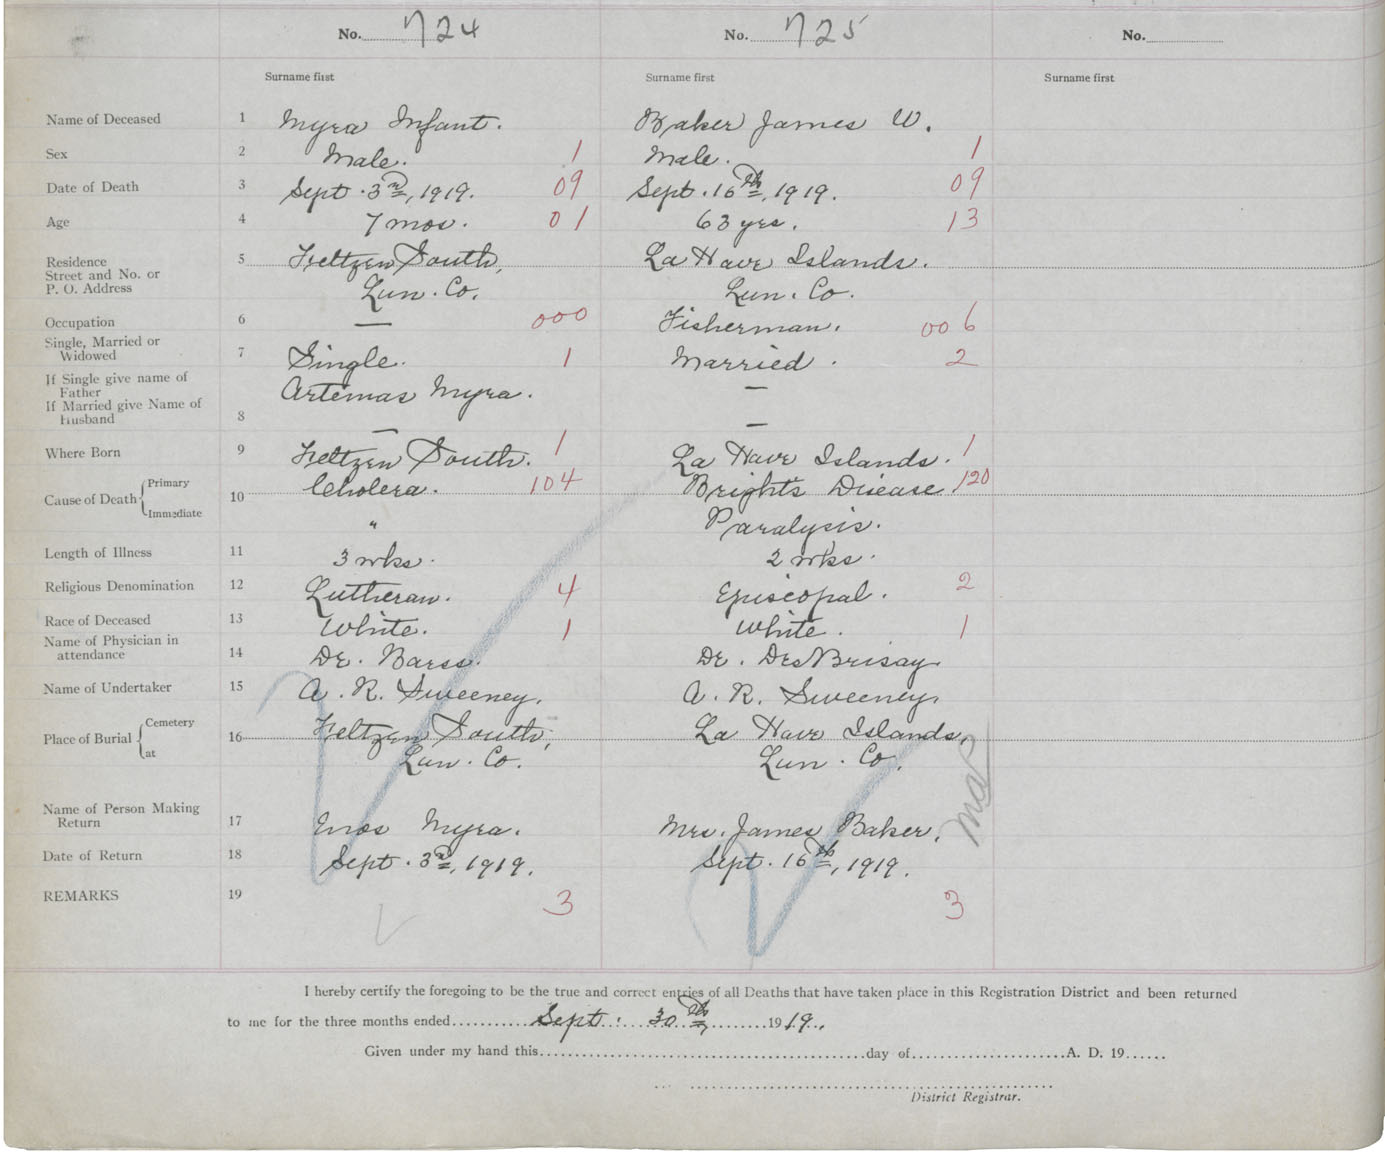 No. 724 No. 725 No.
Surname first Surname first Surname first
Name of Deceased 1 Myra Infant. Baker James W.
Sex 2 Male. 1 Male. 1
Date of Death 3 Sept. 3rd, 1919. 09 Sept. 16th, 1919. 09
Age 4 7 mos. 01 63 yrs. 13
Residence
Street and No. or
P. O. Address 5 Feltzen South, La Have Islands.
Lun. Co. Lun. Co.
Occupation 6 — 000 Fisherman. 006
Single, Married or
Widowed 7 Single. 1 Married. 2
If Single give name of
Father Artemas Myra. —
If Married give Name of
Husband 8 — —
Where Born 9 Feltzen South. 1 La Have Islands. 1
Cause of Death { Primary 10 Cholera. 104 Bright's Disease 120
Immediate " Paralysis.
Length of Illness 11 3 wks. 2 wks.
Religious Denomination 12 Lutheran. 4 Episcopal. 2
Race of Deceased 13 White. 1 White. 1
Name of Physician in
attendance 14 Dr. Barss. Dr. DesBrisay
Name of Undertaker 15 A. R. Sweeney. A. R. Sweeney.
Place of Burial { Cemetery 16 Feltzen South, La Have Islands,
at Lun. Co. Lun. Co.
Name of Person Making
Return 17 Enos Myra. Mrs. James Baker.
Date of Return 18 Sept. 3rd, 1919. Sept. 16th, 1919.
REMARKS 19 3 3
I hereby certify the foregoing to be the true and correct entries of all Deaths that have taken place in this Registration District and been returned
to me for the three months ended Sept. 30th 1919.
Given under my hand this day of A. D. 19
District Registrar.